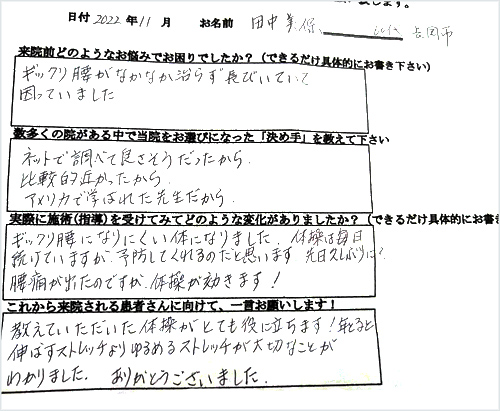 日付 2022年11月 お名前 田中美保
来院前どのようなお悩みでお困りでしたか?(できるだけ具体的にお書き下さい)
ギックリ腰がなかなか治らず長びいていて
困っていました
数多くの院がある中で当院をお選びになった「決め手」を教えて下さい
ネットで調べて良さそうだったから.
比較的近かったから.
アメリカで学ばれた先生だから.
実際に施術(指導)を受けてみてどのような変化がありましたか?(できるだけ具体的にお書き
ギックリ腰になりにくい体になりました. 体操は毎日
続けていますが、予防してくれるのだと思います 先日久しぶりに
腰痛が出たのですが、体操が効きます!
これから来院される患者さんに向けて、一言お願いします!
教えていただいた体操がとても役に立ちます!年とると
伸ばすストレッチよりゆるめるストレッチが大切なことが
わかりました. ありがとうございました.